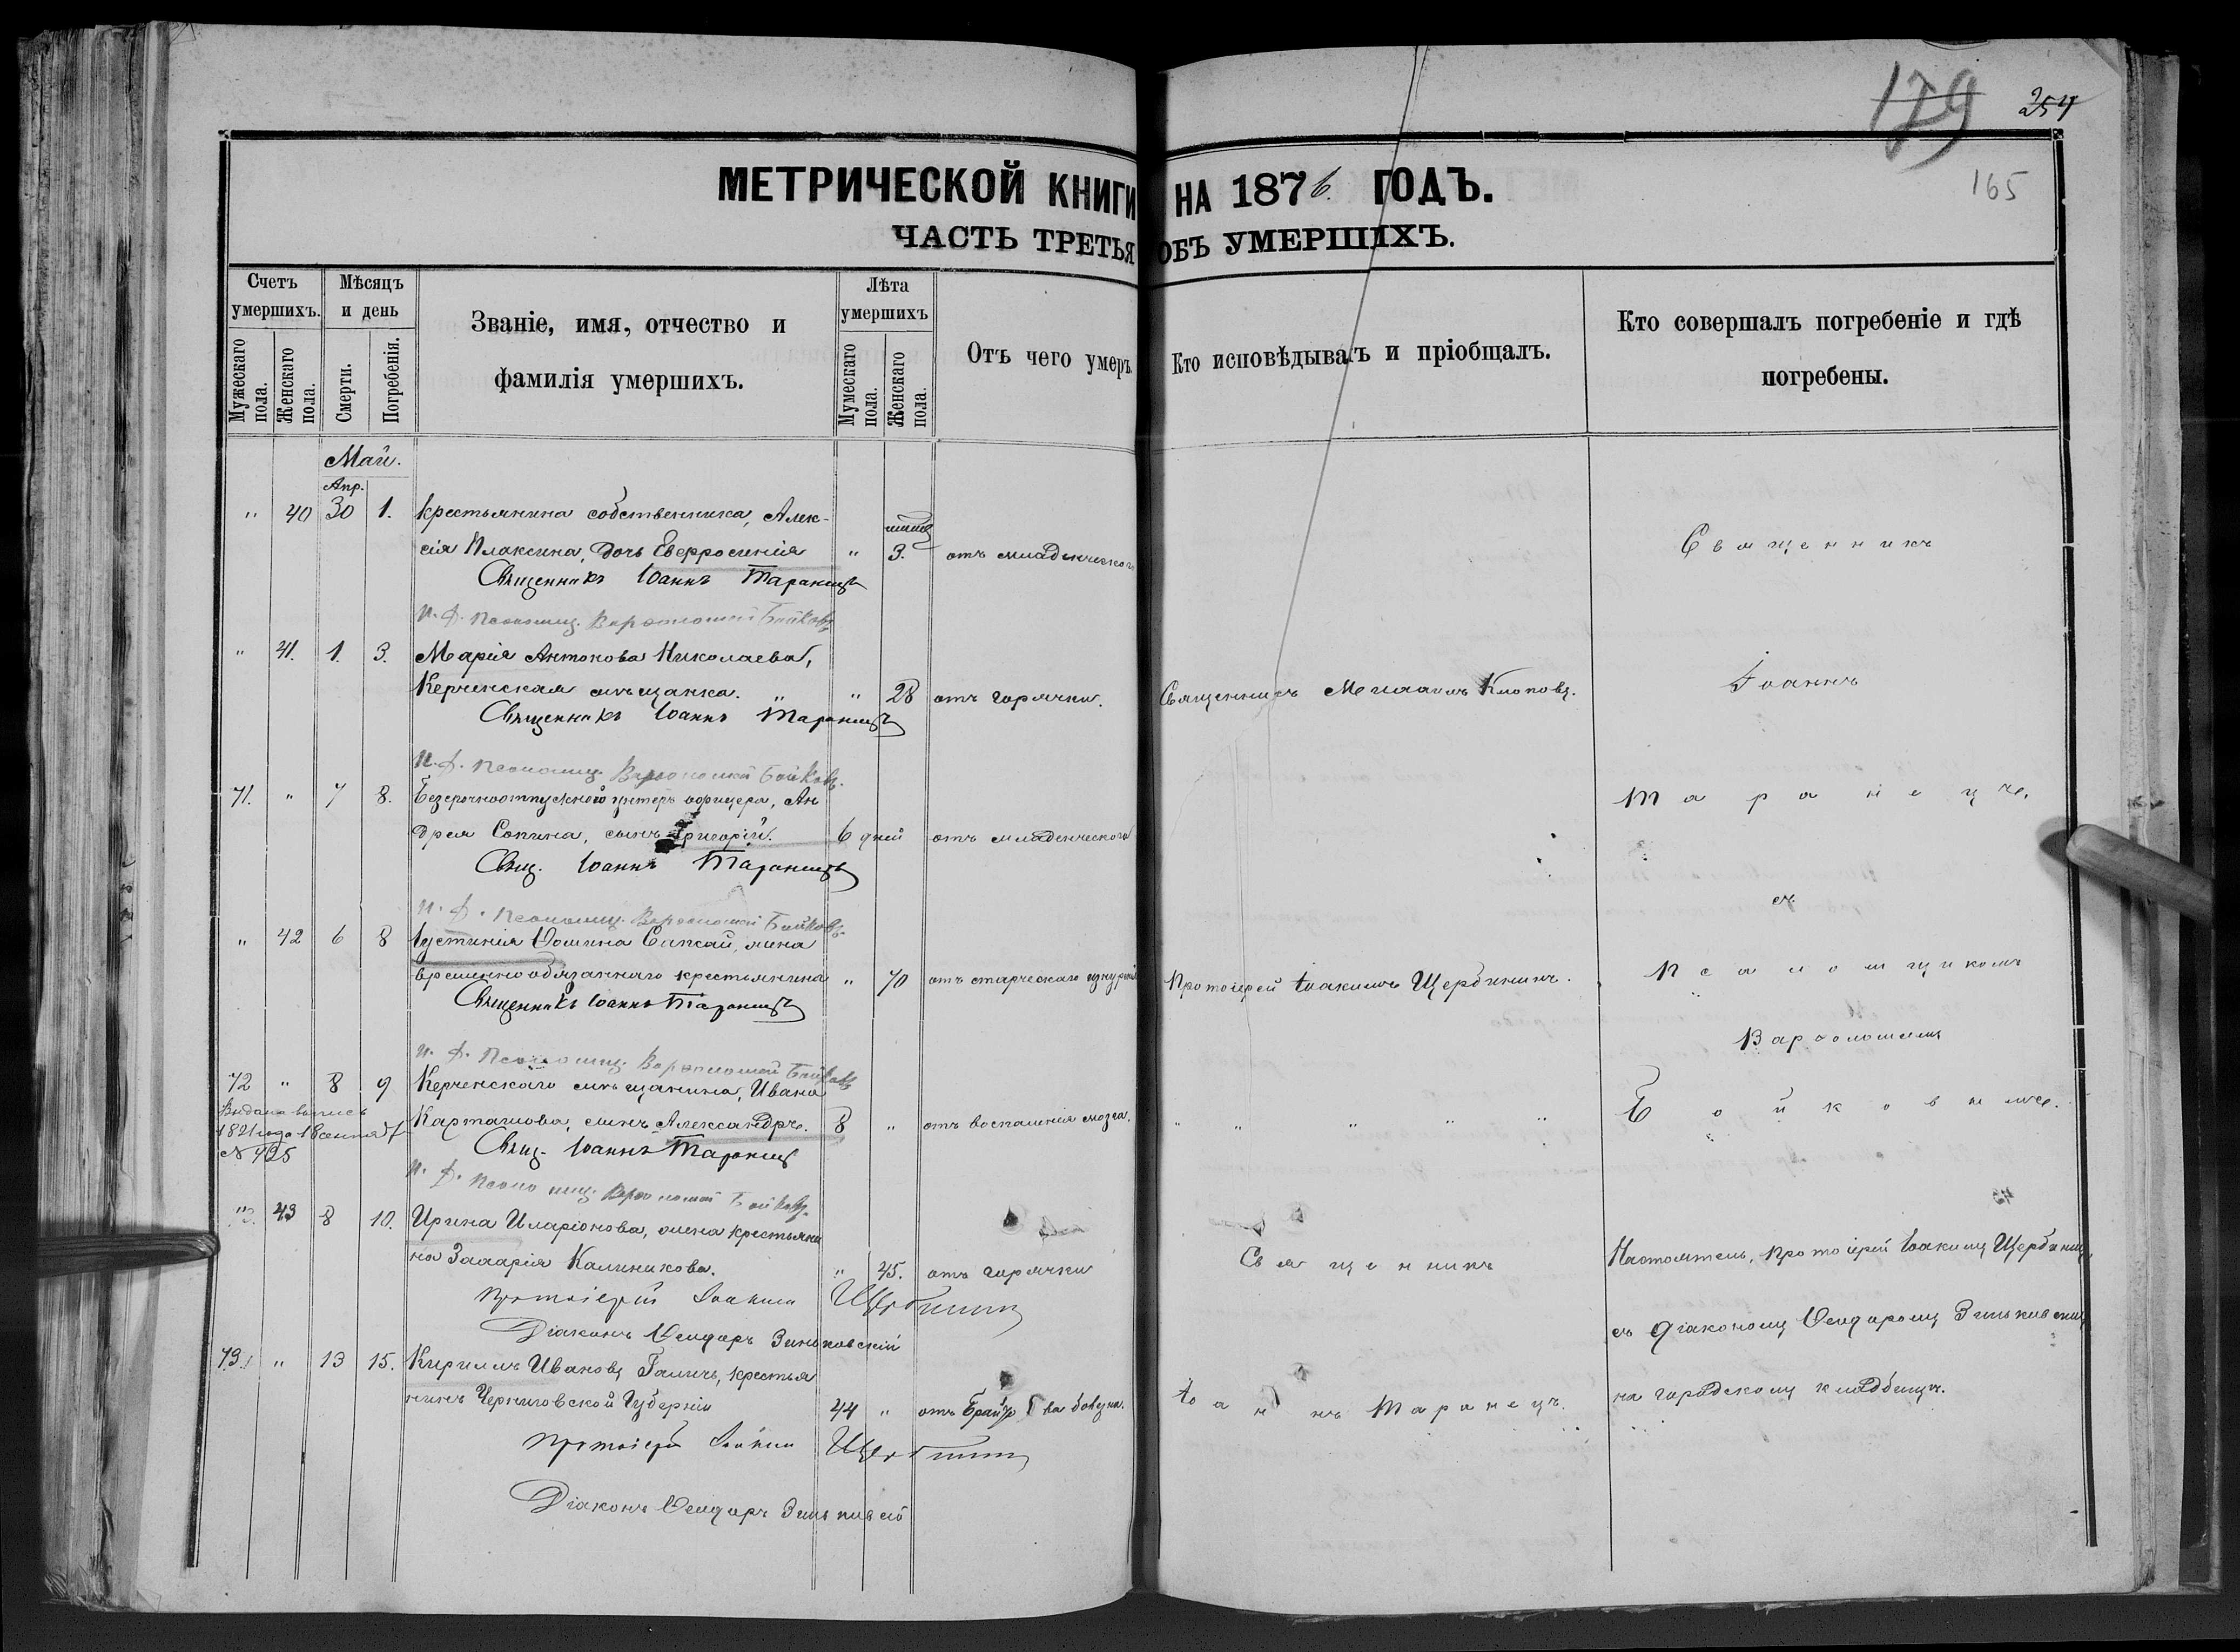 179 254
165
МЕТРИЧЕСКОЙ КНИГИ НА 1876. ГОДЪ.
ЧАСТЬ ТРЕТЬЯ ОБЪ УМЕРШИХЪ.
Счетъ умершихъ.
Мужескаго пола.
Женскаго пола.
Мѣсяцъ и день
Смерти.
Погребенія.
Званіе, имя, отчество и
фамилія умершихъ.
Лѣта умершихъ
Мужескаго пола.
Женскаго пола.
Отъ чего умеръ.
Кто исповѣдывалъ и пріобщалъ.
Кто совершалъ погребеніе и гдѣ
погребены.
Май.
Апр.
" 40 30 1. крестьянина собственника, Алек-
сія Плаксина, дочь Евфросинія " 3. отъ младенческаго
Священникъ
Священникъ Іоаннъ Таранецъ
И. Д. Псаломщ. Варѳоломей Бойковъ
" 41. 1. 3. Марія Антонова Николаева,
Керченская мѣщанка. " " 28 отъ горячки. Священникъ Михаилъ Клоповъ. Іоаннъ
Священникъ Іоаннъ Таранецъ
И. Д. Псаломщ. Варѳоломей Бойковъ.
71. " 7 8. Безсрочноотпускного унтеръ офицера, Ан
дрея Сопина, сынъ Григорій. 6 дней отъ младенческаго
Таранецъ,
Свящ. Іоаннъ Таранецъ
съ
И. Д. Псаломщ. Варѳоломей Бойковъ.
" 42 6 8 Іустинія Ѳомина Сапкай, жена
временно обязаннаго крестьянина " 70 отъ старческаго Протоіерей Іоакимъ Щербининъ. Псаломщикомъ
Священникъ Іоаннъ Таранецъ
Варѳоломеемъ
И. Д. Псаломщ. Варѳоломей Бойковъ
72 " 8 9 Керченскаго мѣщанина, Ивана
Карташова, сынъ Александръ. 8 " отъ воспаленія мозга. " " " " " Бойковымъ.
Выдана выпись
18 сентя
№ 725
Свящ. Іоаннъ Таранецъ
И. Д. Псаломщ. Варѳоломей Бойковъ.
" 43 8 10. Ирина Иларіонова, жена крестьяни
на Захарія Калиникова. " 45. отъ горячки Священникъ Настоятель, протоіерей Іоакимъ Щербининъ,
Протоіерей Іоакимъ Щербининъ
Діаконъ Ѳеодоръ Зиньковскій
съ діакономъ Ѳеодоромъ Зиньковскимъ
73. " 13 15. Кириллъ Ивановъ Галичъ, крестья
нинъ Черниговской Губерніи 44 " отъ Іоаннъ Таранецъ. на городскомъ кладбищѣ.
Протоіерей Іоакимъ Щербининъ
Діаконъ Ѳеодоръ Зиньковскій